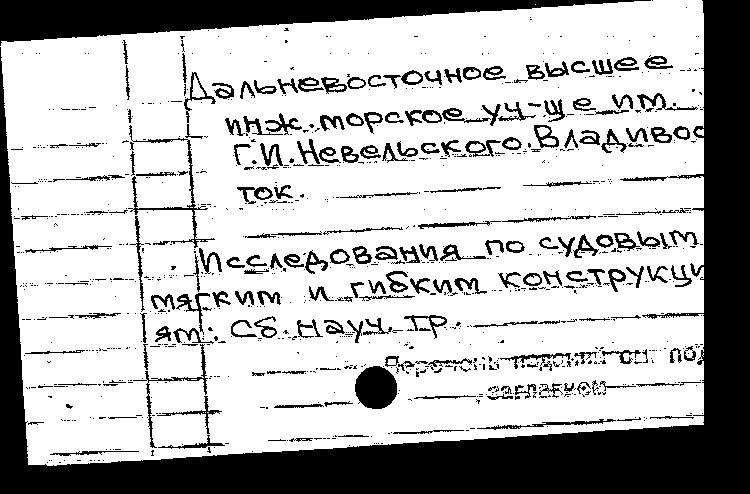 Дальневосточное высшее
инж. морское уч-ще им.
Г.И. Невельского. Владивос
ток.
Исследования по судовым
мягким и гибким конструкци
ям: Сб. науч. тр.
Перечень изданий см. под
заглавием